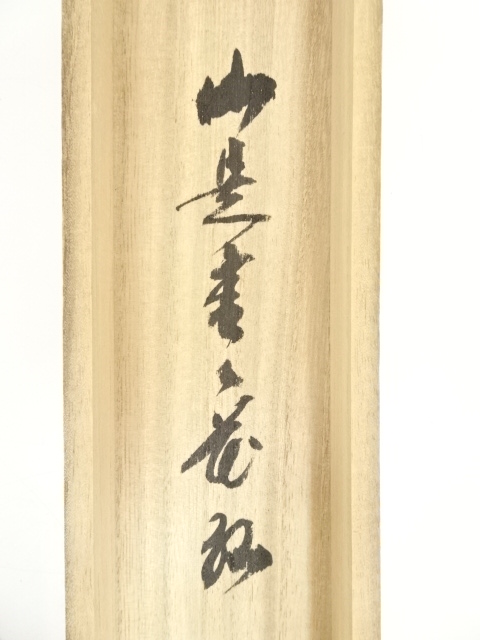 山是青々花紅